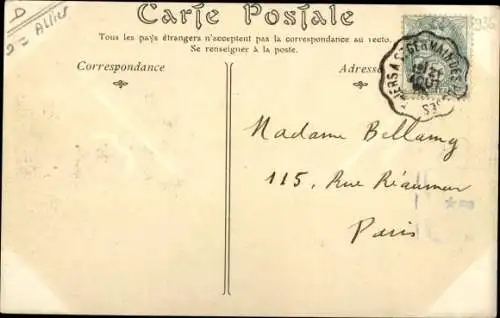 D
9 = Allier
Carte Postale
Tous les pays étrangers n'acceptent pas la correspondance au recto.
Se renseigner à la poste.
Correspondance
Adresse
THIERS A ST GERMAIN DES FOSSES
Madame Bellamy
115, Rue Réaumur
Paris